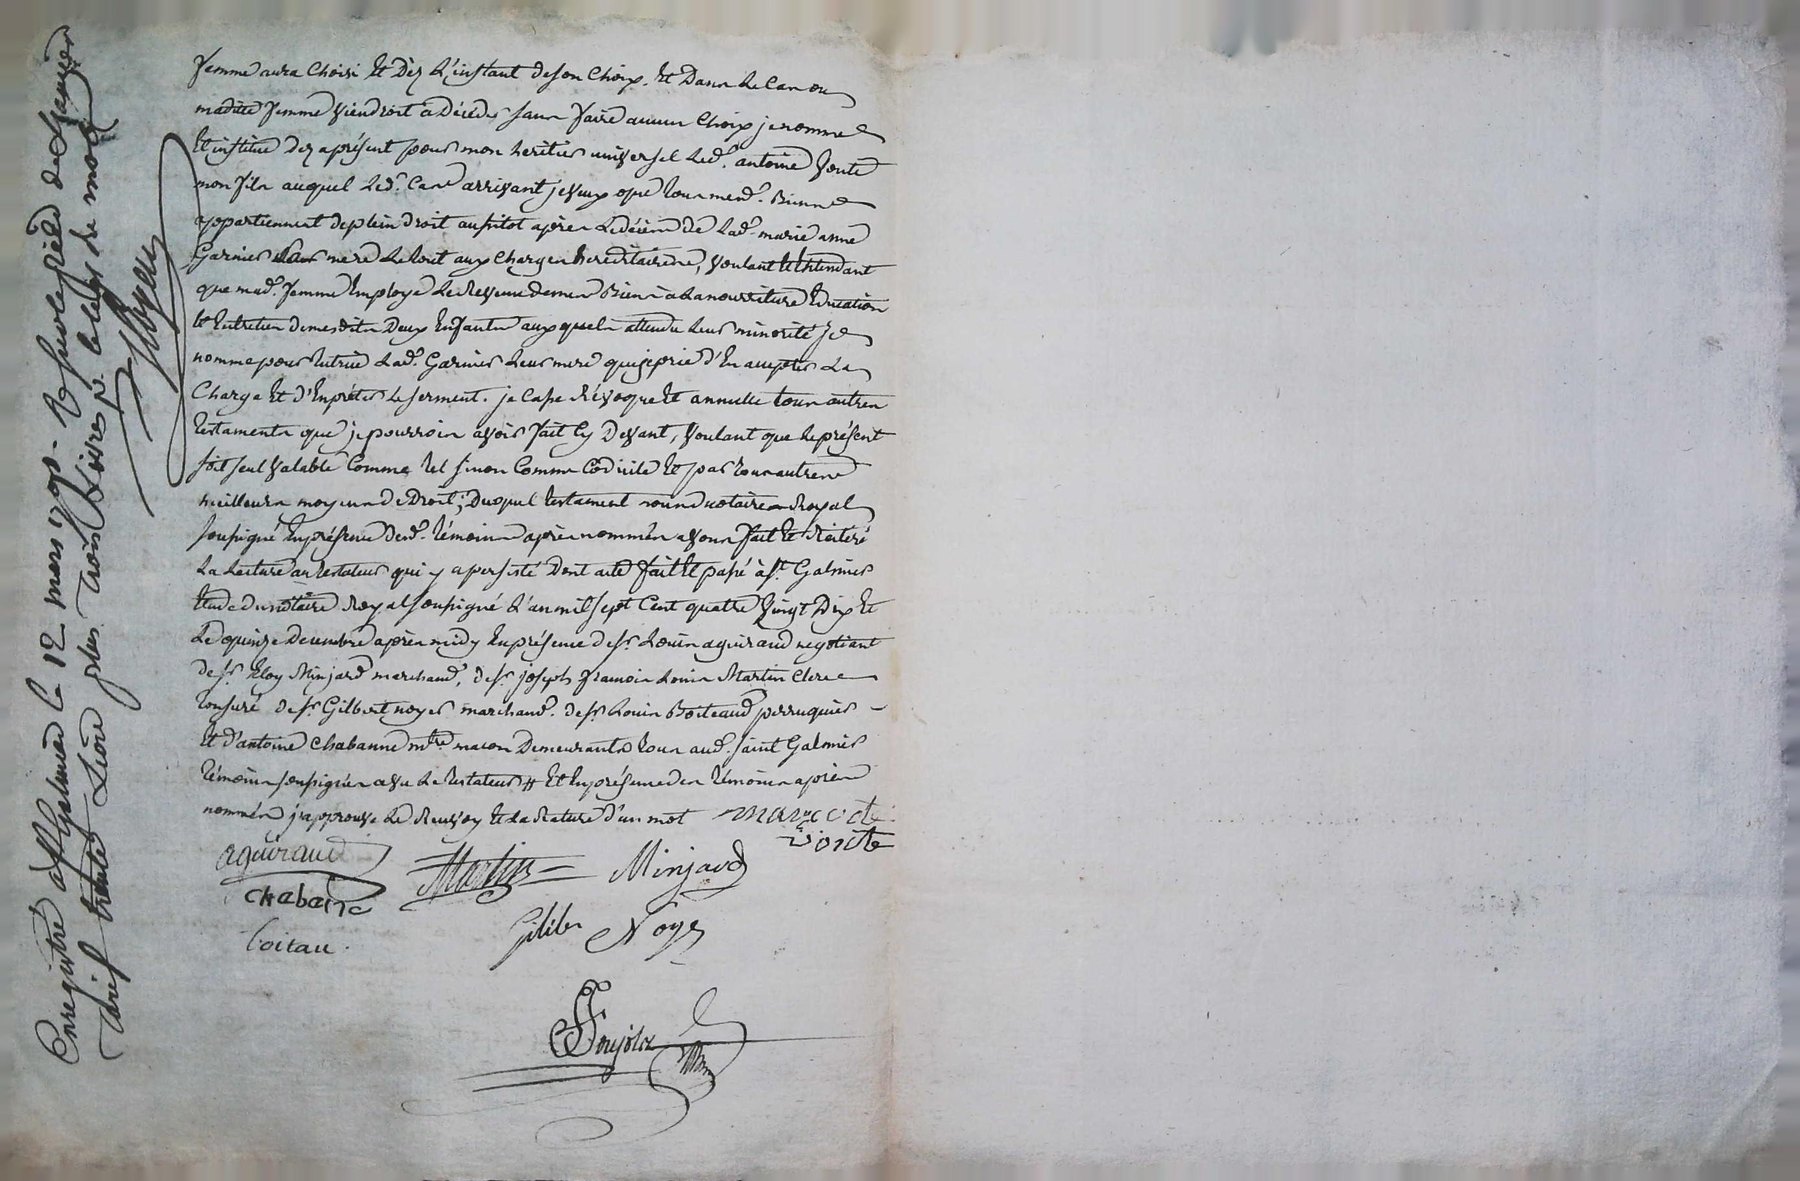 femme aura Choisi Et Dez L'instant de son Choix. Et Dans Le Cas ou
madite femme viendroit a Déceder sans faire aucun Choix je nomme
Et institue Dez aprésent pour mon heritier universel Led. antoine
mon fils auquel Led. Cas arrivant je veux que tous mesd. Biens
appartiennent de plein droit aussitot après Le décès de Lad. marie anne
Garnier mere Le tout aux Charges hereditaires, voulant Et Entendant
que mad. femme Employe Le Revenu de mes Biens a La nourriture Education
Et Entretien de mesdits Deux Enfants auxquels attendu Leur minorité Je
nomme pour tutrice Lad. Garnier Leur mere que je prie d'En accepter La
Charge Et d'En préter Le serment. je Casse Révoque Et annulle tous autres
testaments que je pourrois avoir fait Cy Devant, voulant que Le présent
soit seul valable Comme tel sinon Comme Codicile Et par tous autres
meilleurs moyens de Droit; Duquel testament nous notaire Royal
soussigné En présence desd. témoins après nommés avons fait Et Réiteré
La Lecture au testateur qui y a persisté Dont acte fait Et passé à St. Galmier
Etude du notaire Royal soussigné L'an mil sept Cent quatre vingt Dix Et
Le quinze Decembre après midy En présence de sr. Louis aguiraud negotiant
de sr. Eloy Minjard marchand, de sr. joseph françois Louis Martin Clerc
tonsuré de sr. Gilbert noyer marchand. de sr. Louis Boiteaud perruquier
Et d'antoine Chabanne mtre macon Demeurants tous aud. saint Galmier
témoins soussignés avec Le testateur # Et En présence des témoins après
nommés j'approuve Le Renvoy Et La Rature d'un mot
aguiraud Martin Minjard
chabane
boitau. Noyer
Enregistré a St Galmier le 12 mars 1795.